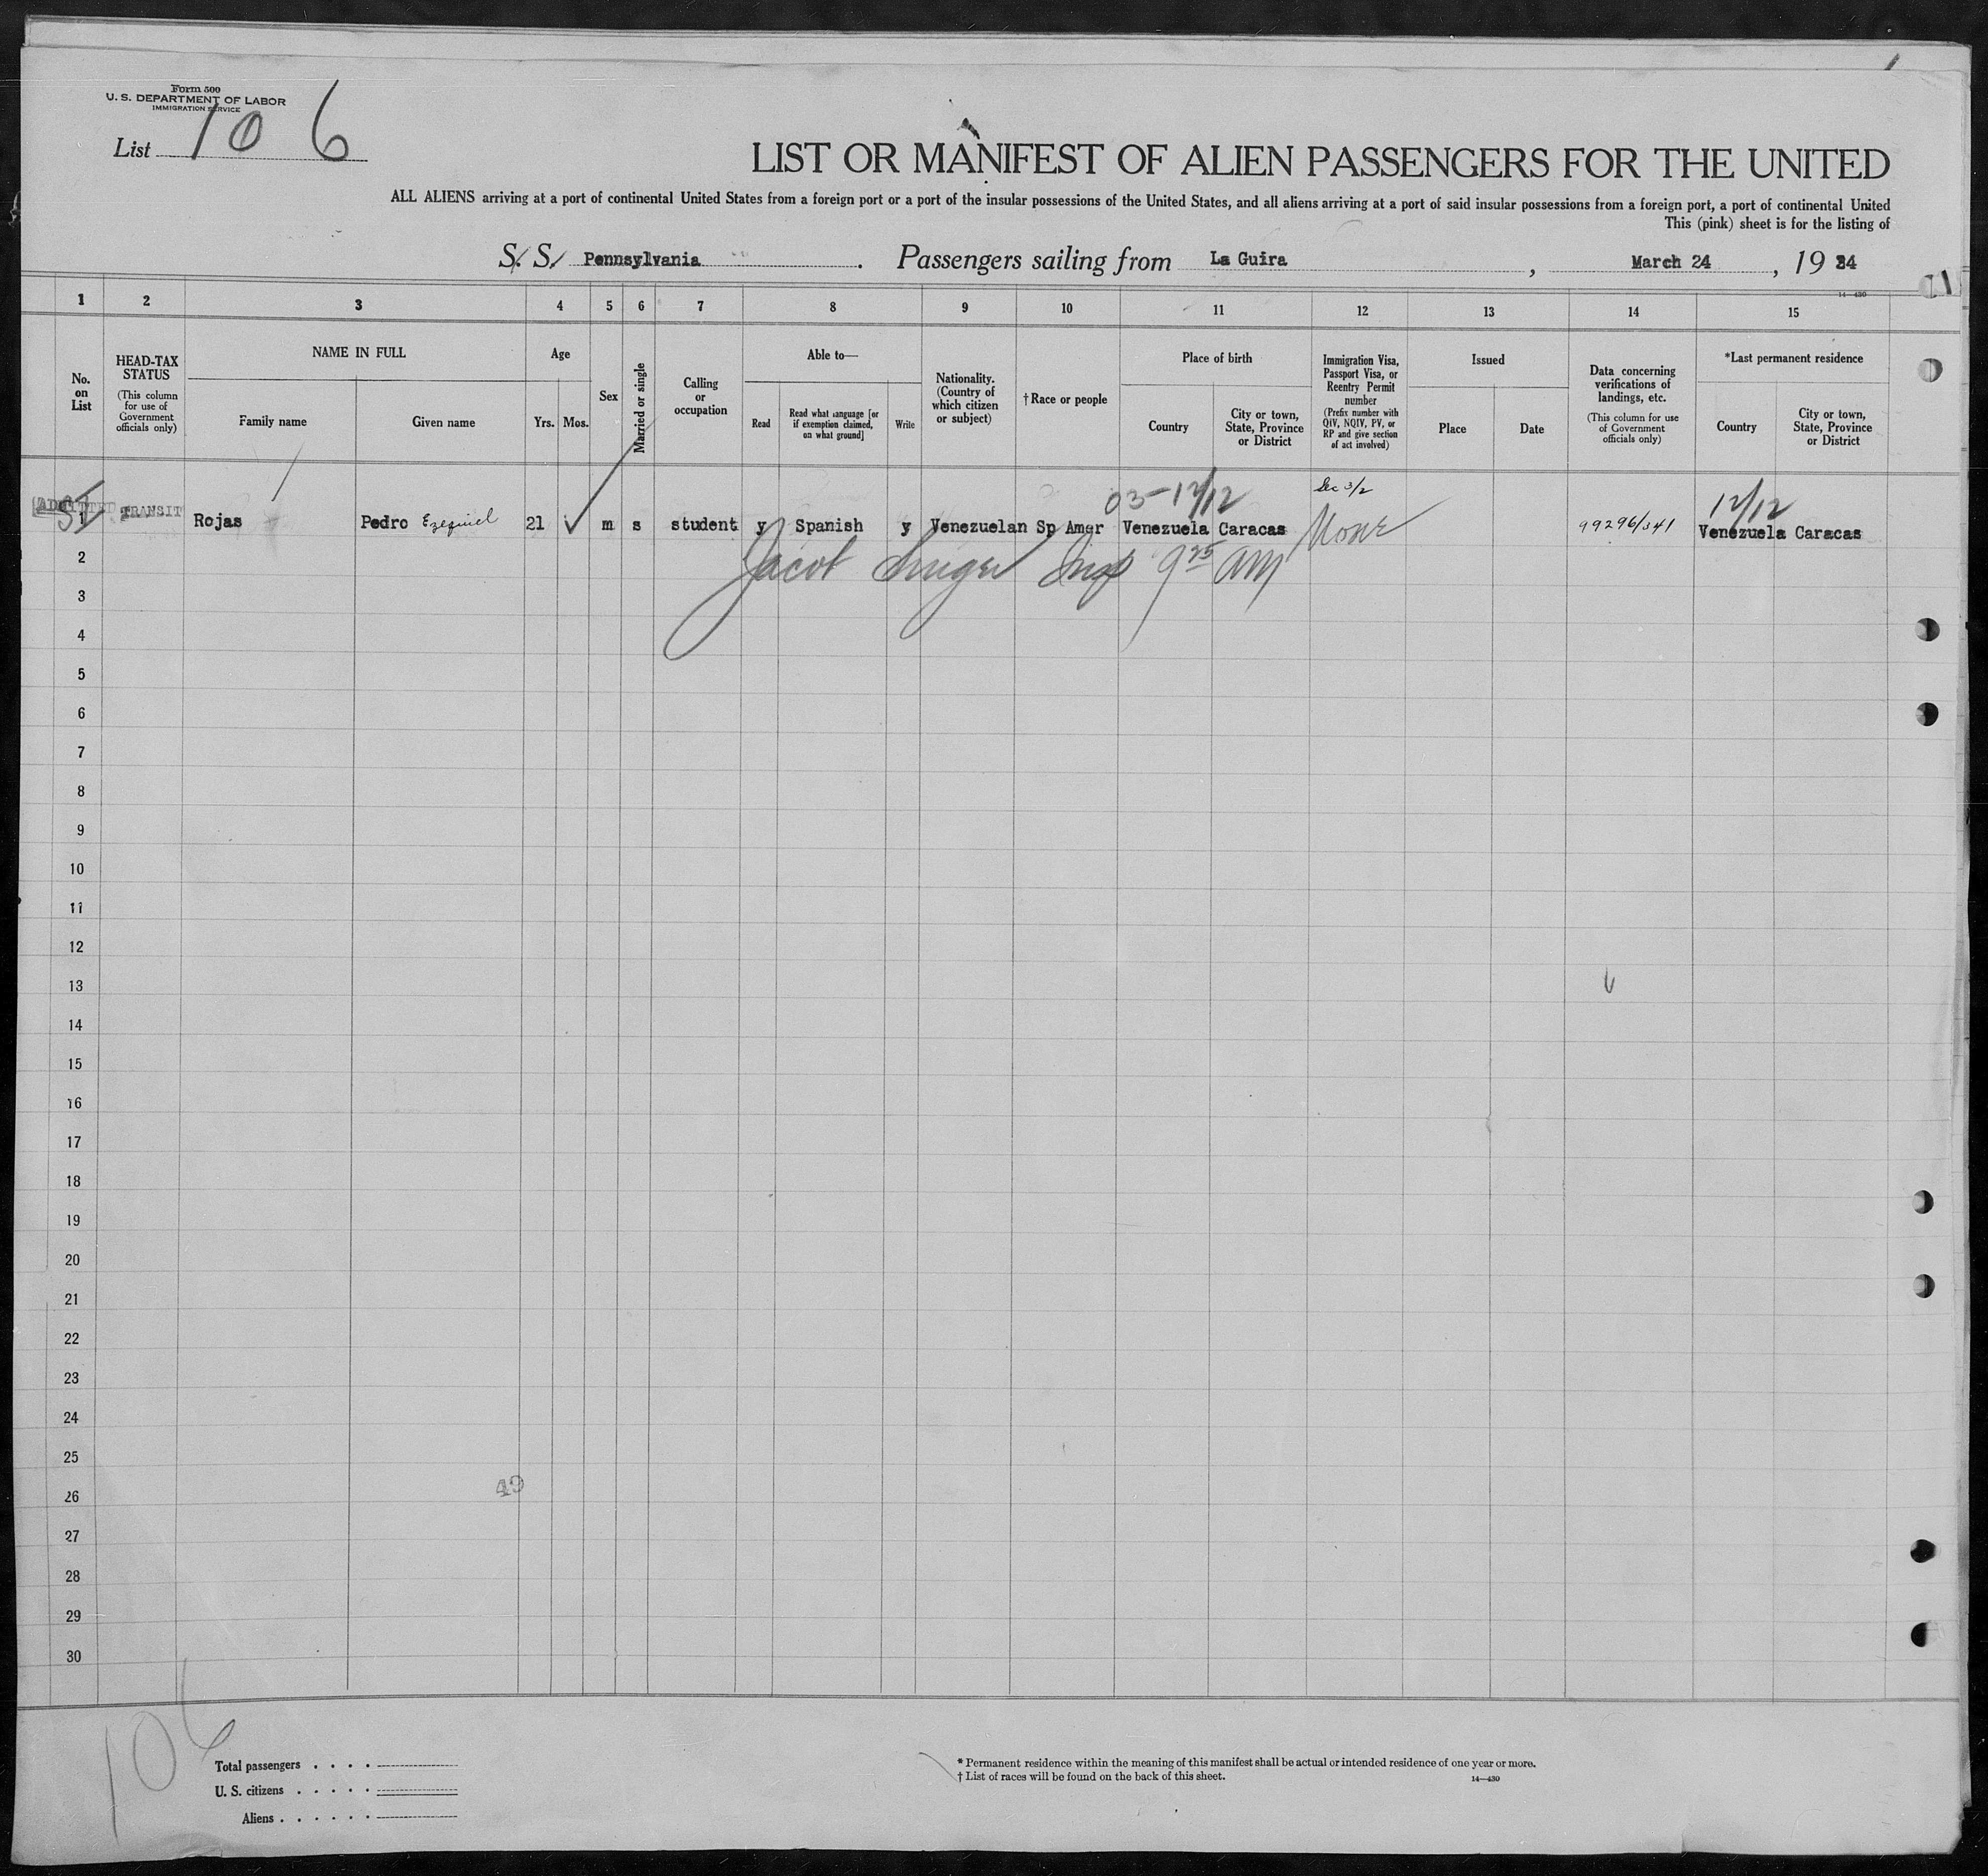 Form 500
U. S. DEPARTMENT OF LABOR
IMMIGRATION SERVICE
List 106
LIST OR MANIFEST OF ALIEN PASSENGERS FOR THE UNITED
ALL ALIENS arriving at a port of continental United States from a foreign port or a port of the insular possessions of the United States, and all aliens arriving at a port of said insular possessions from a foreign port, a port of continental United
This (pink) sheet is for the listing of
S. S. Pennsylvania . Passengers sailing from La Guira , March 24 , 19 34
14—430
1 2 3 4 5 6 7 8 9 10 11 12 13 14 15
No. on List
HEAD-TAX STATUS
(This column for use of Government officials only)
NAME IN FULL
Family name
Given name
Age
Yrs. Mos.
Sex
Married or single
Calling or occupation
Able to—
Read
Read what language [or if exemption claimed, on what ground]
Write
Nationality. (Country of which citizen or subject)
†Race or people
Place of birth
Country
City or town, State, Province or District
Immigration Visa, Passport Visa, or Reentry Permit number
(Prefix number with QIV, NQIV, PV, or RP and give section of act involved)
Issued
Place
Date
Data concerning verifications of landings, etc.
(This column for use of Government officials only)
*Last permanent residence
Country
City or town, State, Province or District
03-12/12 Sec 3/2 12/12
ADMITTED 1 TRANSIT Rojas Pedro Ezequiel 21 m s student y Spanish y Venezuelan Sp Amer Venezuela Caracas None 99296/341 Venezuela Caracas
2 Jacob Insp 9 25 AM
3
4
5
6
7
8
9
10
11
12
13
14
15
16
17
18
19
20
21
22
23
24
25
26 49
27
28
29
30
106
Total passengers . . . .
U. S. citizens . . . . .
Aliens . . . . . .
* Permanent residence within the meaning of this manifest shall be actual or intended residence of one year or more.
† List of races will be found on the back of this sheet.
14—430